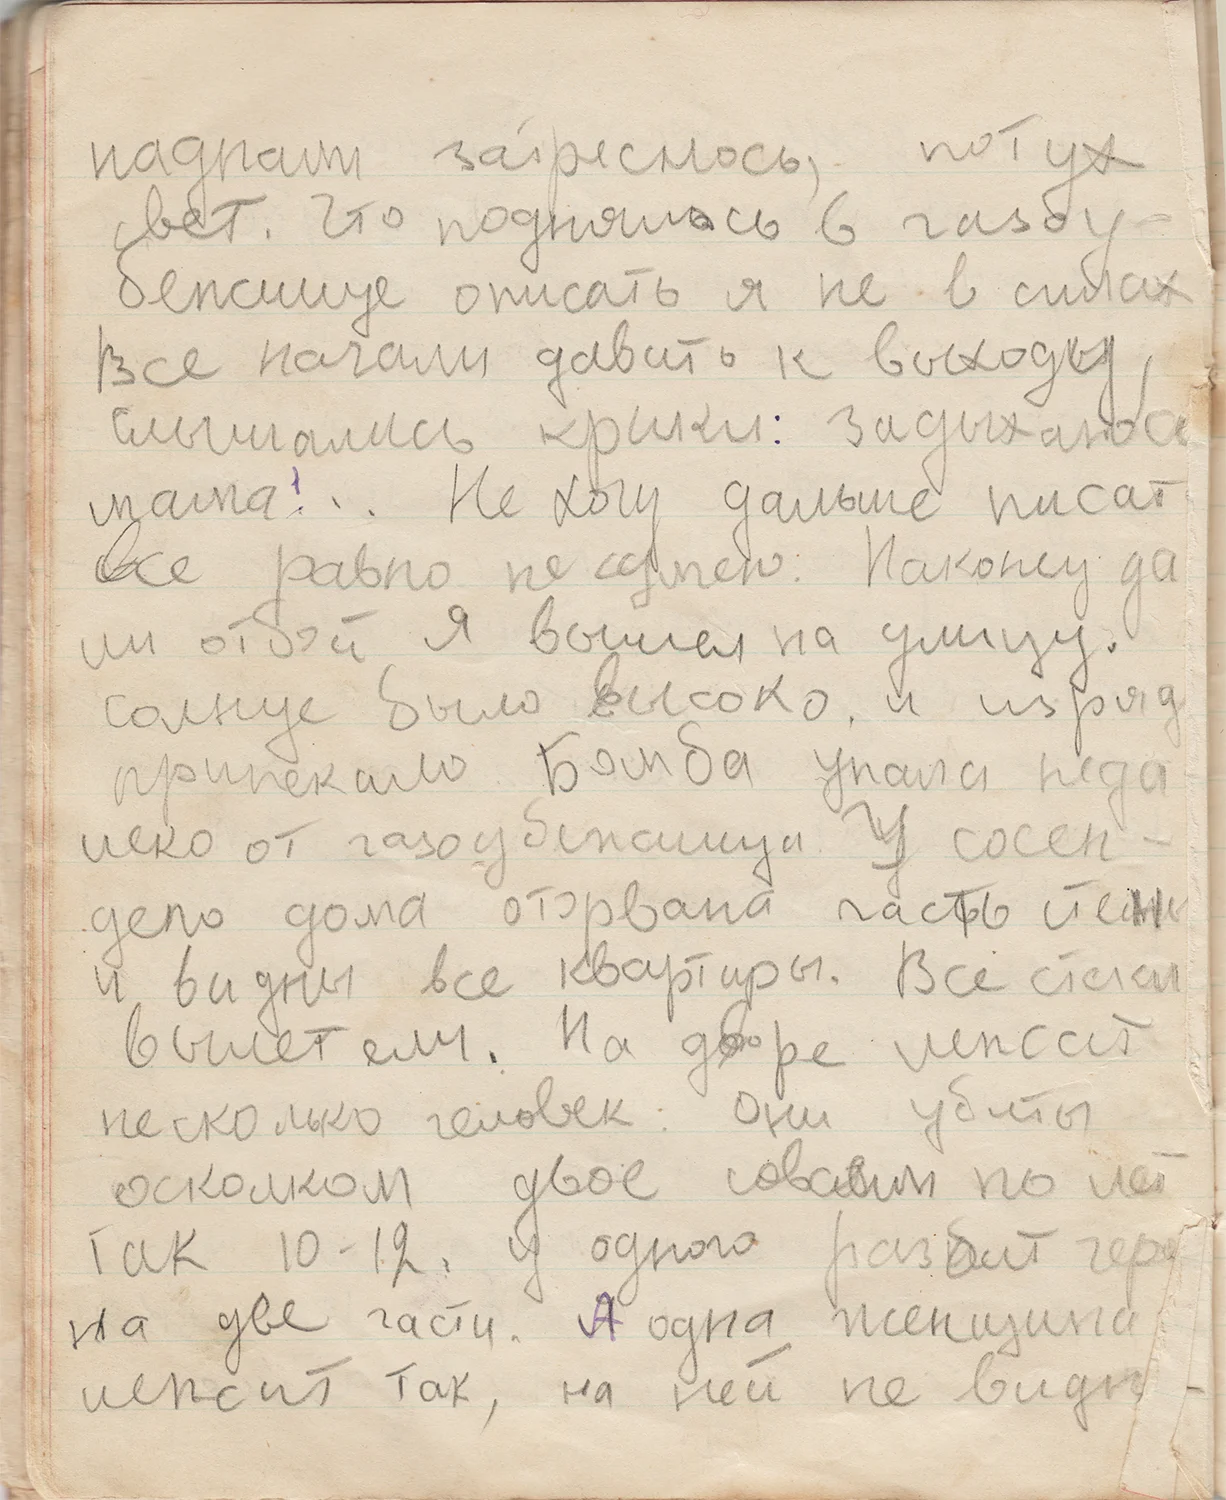 наднами затреслось, потух
свет. Что поднялось в газоу-
бежище описать я не в силах
Все начали давить к выходу,
слышались крики: задыхаюсь
мама!.. Не хочу дальше писат
все равно не сумею. Наконец да
ли отбой я вышел на улицу.
солнце было высоко, и изряд
припекало. Бомба упала неда
леко от газоубежища У сосен-
дего дома оторвана часть стены
и видны все квартиры. Все стекл
вылетели. На дворе лежат
несколько человек: они убиты
осколком двое по лет
так 10-12. у одного разбит чере
на две части. А одна женщина
лежит так, на ней не видн-